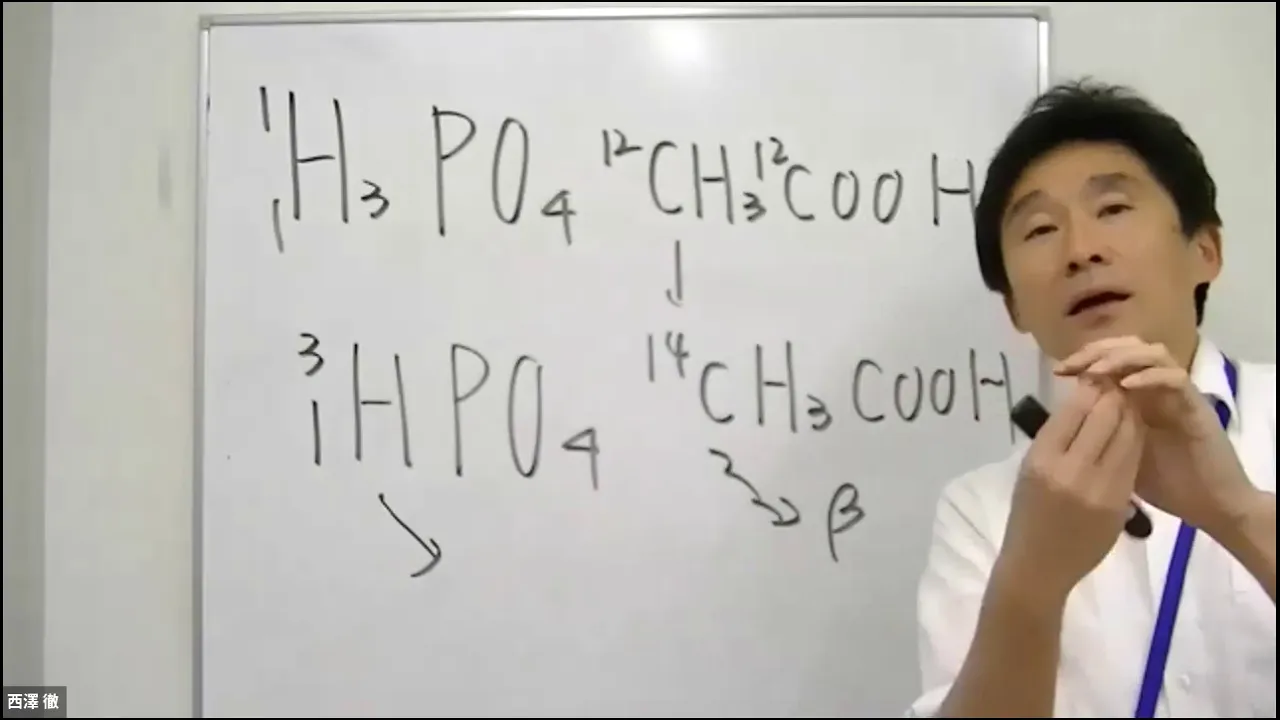 ¹₁H₃PO₄ ¹²CH₃¹²COOH
↓
³₁HPO₄ ¹⁴CH₃COOH
β
西澤 徹